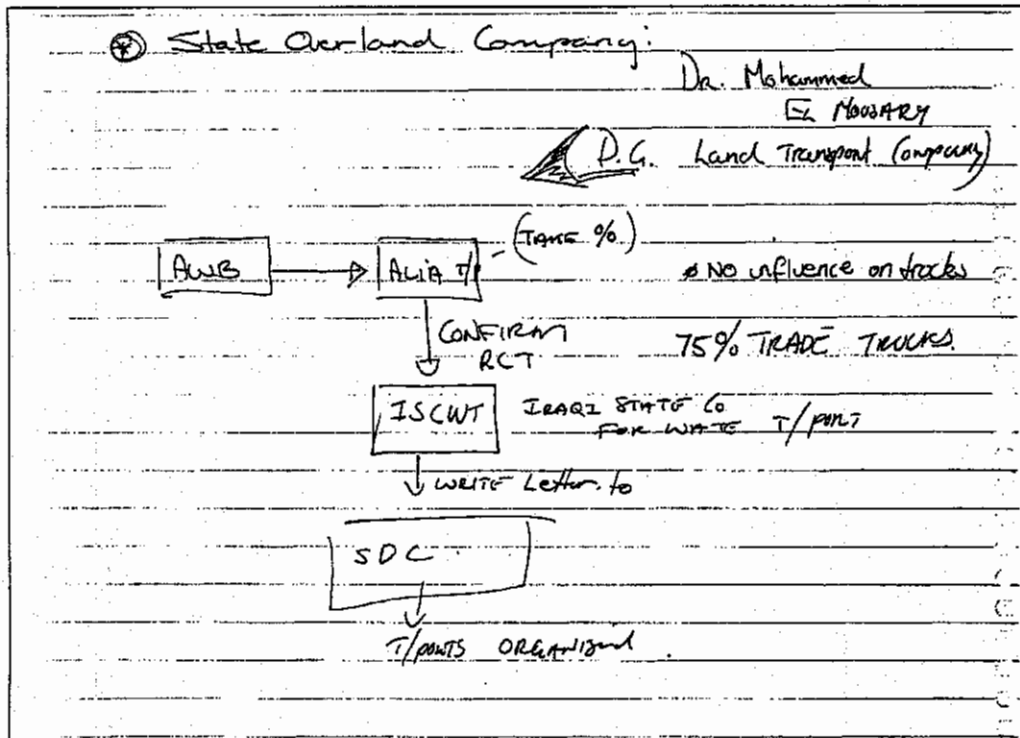 State Overland Company:
Dr. Mohammed
EL MOUSARY
D.G. Land Transport Company)
(TAKE %)
AWB
ALIA T/
No influence on trucks
CONFIRM
RCT
75% TRADE TRUCKS.
ISCWT
IRAQI STATE Co
FOR WATE T/PORT
WRITE Letter to
SOC
T/PORTS ORGANIZED.